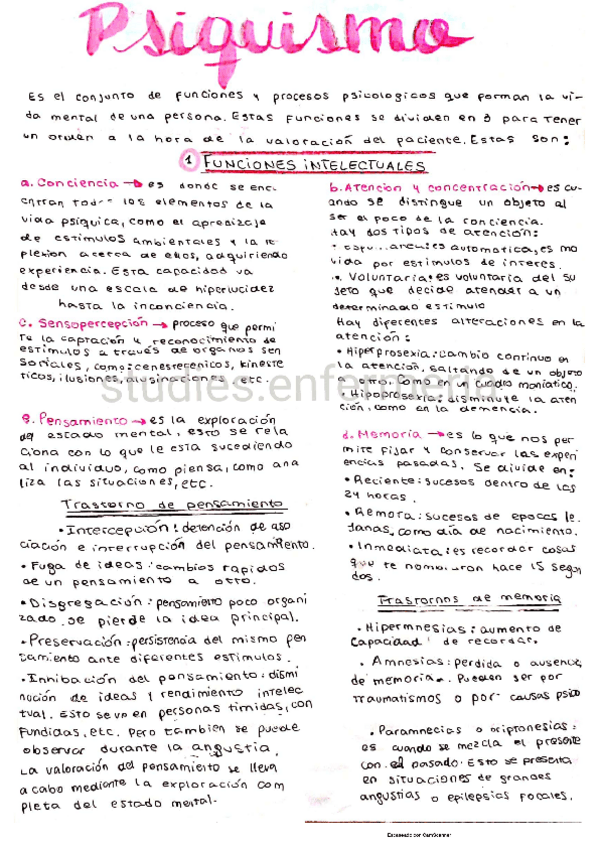 Psiquismo
Es el conjunto de funciones y procesos psicologicos que forman la vi-
da mental de una persona. Estas funciones se dividen en 3 para tener
un orden a la hora de la valoración del paciente. Estas son:
1 FUNCIONES INTELECTUALES
a. Conciencia → es donde se enc
entran todos los elementos de la
vida psíquica, como el aprendizaje
de estimulos ambientales y la re-
plexion acerca de ellos, adquiriendo
experiencia. Esta capacidad va
desde una escala de hiperlucidez
hasta la inconciencia.
c. Sensopercepción → proceso que permi
te la captación y reconocimiento de
estimulos a través de organos sen
soriales, como: cenestecenicos, kineste
ticos, ilusiones, alusinaciones etc.
e. Pensamiento → es la exploración
del estado mental, esto se rela
ciona con lo que le esta sucediendo
al individuo, como piensa, como ana
liza las situaciones, etc.
Trastorno de pensamiento
• Intercepción: detención de aso
ciación e interrupción del pensamiento.
• Fuga de ideas: cambios rapidos
de un pensamiento a otro.
• Disgregación: pensamiento poco organi
zado, se pierde la idea principal.
• Preservación: persistencia del mismo pen
samiento ante diferentes estimulos.
• Inhibación del pensamiento: dismi
nución de ideas y rendimiento intelec
tual. Esto se ve en personas timidas, con
fundidas, etc. Pero tambien se puede
observar durante la angustia.
La valoración del pensamiento se lleva
a cabo mediante la exploración com
pleta del estado mental.
b. Atencion y concentración → es cu-
ando se distingue un objeto al
ser el poco de la conciencia.
Hay dos tipos de atención:
automatica; es mo
vida por estimulos de interes.
• Voluntaria: es voluntaria del su
jeto que decide atender a un
determinado estimulo
Hay diferentes alteraciones en la
atención:
• Hiperprosexia: Cambio continuo en
la atención, saltando de un objeto
a otro. Como en un cuadro maniatico.
• Hipoprosexia: disminuye la aten
ción, como en la demencia.
d. Memoria → es lo que nos per
mite fijar y conservar las experi
encias pasadas. Se divide en:
• Reciente: sucesos dentro de las
24 horas.
• Remora: sucesos de epocas le
janas, como día de nacimiento.
• Inmediata: es recordar cosas
que te nombraron hace 15 segun
dos.
Trastornos de memoria
• Hipermnesias: aumento de
capacidad de recordar.
• Amnesias: perdida o ausencia
de memoria. Pueden ser por
traumatismos o por causas psico
• Paramnecias o criptonesias:
es cuando se mezcla el presente
con el pasado. Esto se presenta
en situaciones de grandes
angustias o epilepsias focales.
studies.enfermeria
Escaneado con CamScanner